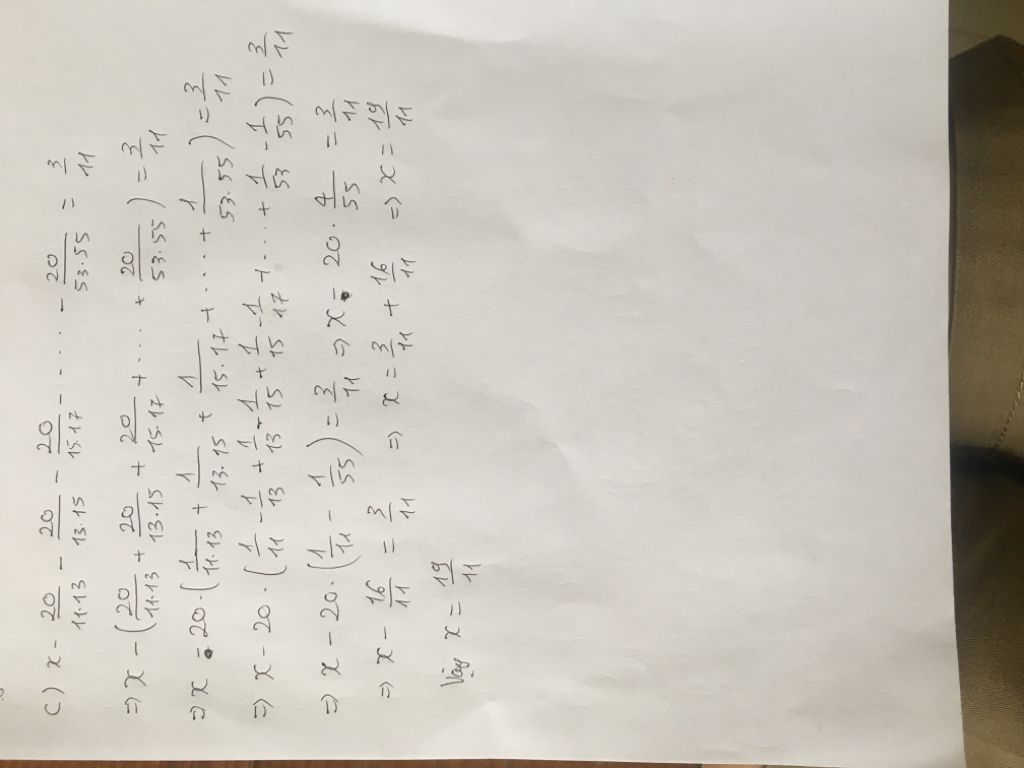 c) x - 20/11.13 - 20/13.15 - 20/15.17 - .... - 20/53.55 = 3/11
=> x - (20/11.13 + 20/13.15 + 20/15.17 + ... + 20/53.55) = 3/11
=> x - 20.(1/11.13 + 1/13.15 + 1/15.17 + .... + 1/53.55) = 3/11
=> x - 20.(1/11 - 1/13 + 1/13 - 1/15 + 1/15 - 1/17 + .... + 1/53 - 1/55) = 3/11
=> x - 20.(1/11 - 1/55) = 3/11 => x - 20.4/55 = 3/11
=> x - 16/11 = 3/11 => x = 3/11 + 16/11 => x = 19/11
Vậy x = 19/11